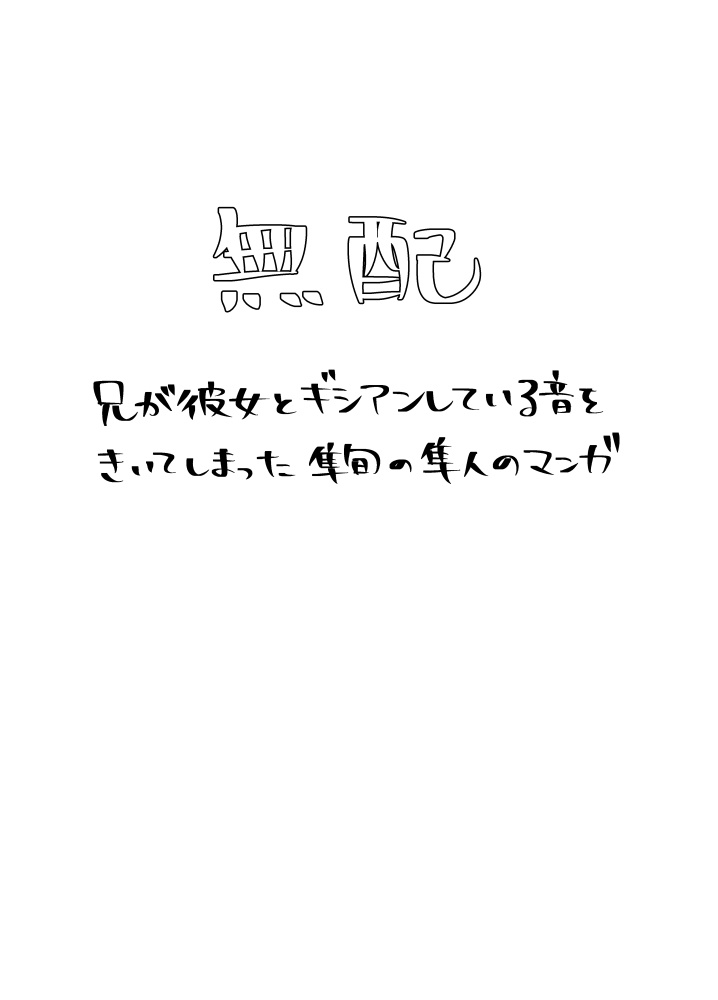 無配
兄が彼女とギシアンしている音を
きいてしまった 隼旬の隼人のマンガ